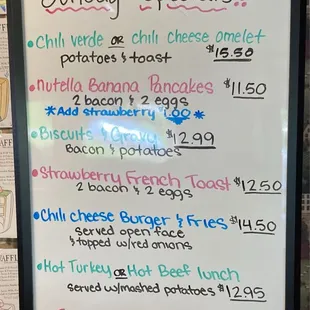 Sunday Specials
• Chili verde OR chili cheese omelet
potatoes & toast $15.50
• Nutella Banana Pancakes $11.50
2 bacon & 2 eggs
*Add strawberry $1.00*
• Biscuits & Gravy $12.99
Bacon & potatoes
• Strawberry French Toast $12.50
2 bacon & 2 eggs
• Chili cheese Burger & Fries $14.50
served open face
& topped w/red onions
• Hot Turkey OR Hot Beef lunch
served w/mashed potatoes $12.95